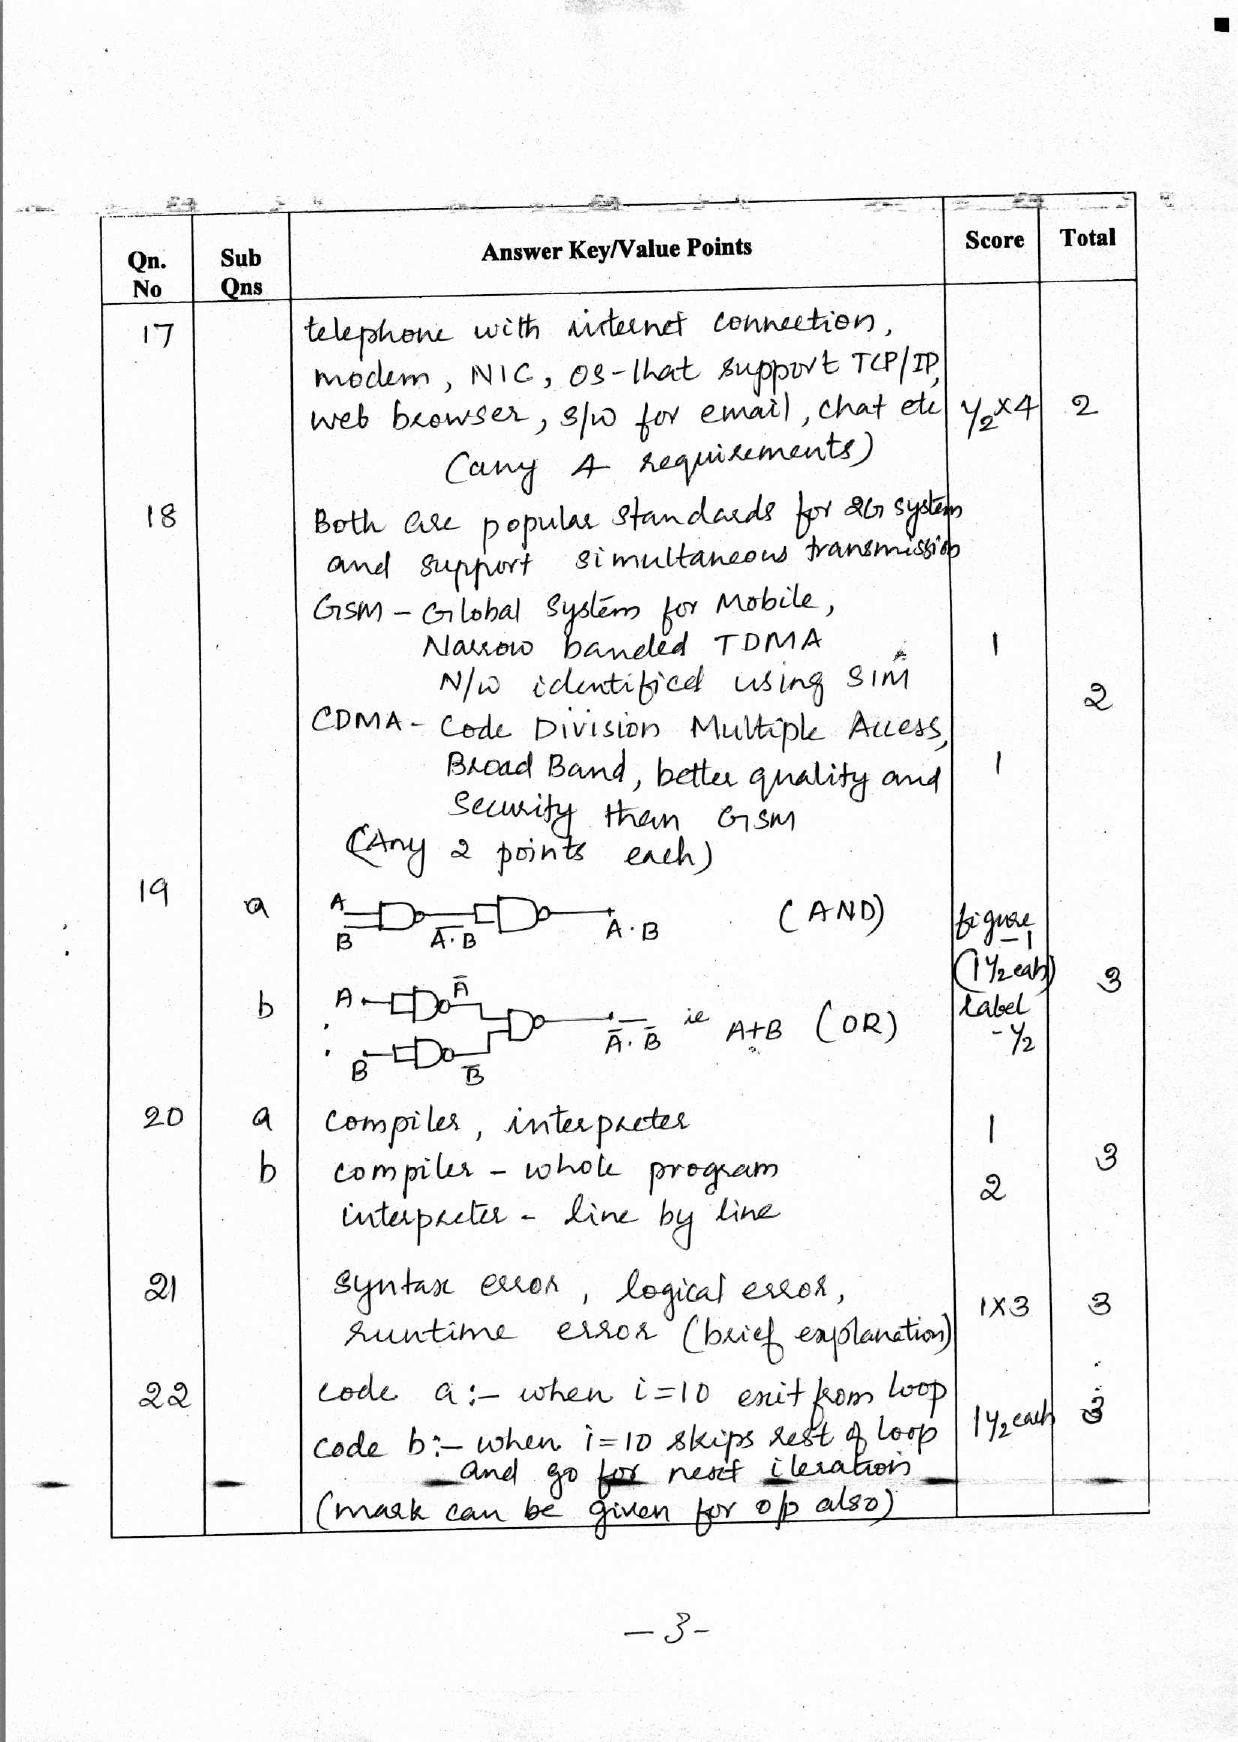 Qn. No Sub Qns Answer Key/Value Points Score Total
17 telephone with internet connection,
modem, NIC, OS-that support TCP/IP,
web browser, s/w for email, chat etc ½×4 2
(any 4 requirements)
18 Both are popular standards for 2G system
and support simultaneous transmission
GSM - Global System for Mobile,
Narrow banded TDMA 1
N/w identified using SIM
2
CDMA - Code Division Multiple Access,
Broad Band, better quality and 1
Security than GSM
(Any 2 points each)
19 a A B A̅.̅B̅ A.B (AND) figure - 1
(1½ each)
3
b A A̅ B B̅ A̅.B̅ ie A+B (OR) label
- ½
20 a compiler, interpreter 1
3
b compiler - whole program 2
interpreter - line by line
21 syntax error, logical error,
runtime error (brief explanation) 1×3 3
22 code a :- when i=10 exit from loop
code b :- when i=10 skips rest of loop 1½ each 3
and go for next iteration
(mark can be given for o/p also)
-3-